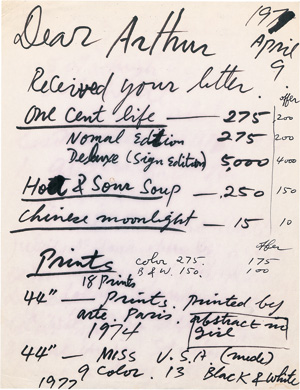 1977
Dear Arthur April
9
Received your letter.
offer
One Cent life — 275 200
Nomal Edition 275 200
Deluxe (Sign Edition) 5,000 4000
Hot & Sour Soup — .250 150
Chinese moonlight — 15 10
offer
Prints color 275. 175
18 Prints B & W. 150. 100
44" — Prints. Printed by
arte. Paris. Abstract
1974 girl
44" — MISS U.S.A. (nude)
1977 9 Color. 13 Black & White